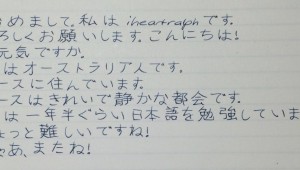 めまして。私は iheartralph です。
ろしくお願いします。こんにちは!
元気ですか。
はオーストラリア人です。
ースに住んでいます。
ースはきれいで静かな都会です。
は一年半ぐらい日本語を勉強していま
ょっと難しいですね!
ゃあ、またね!